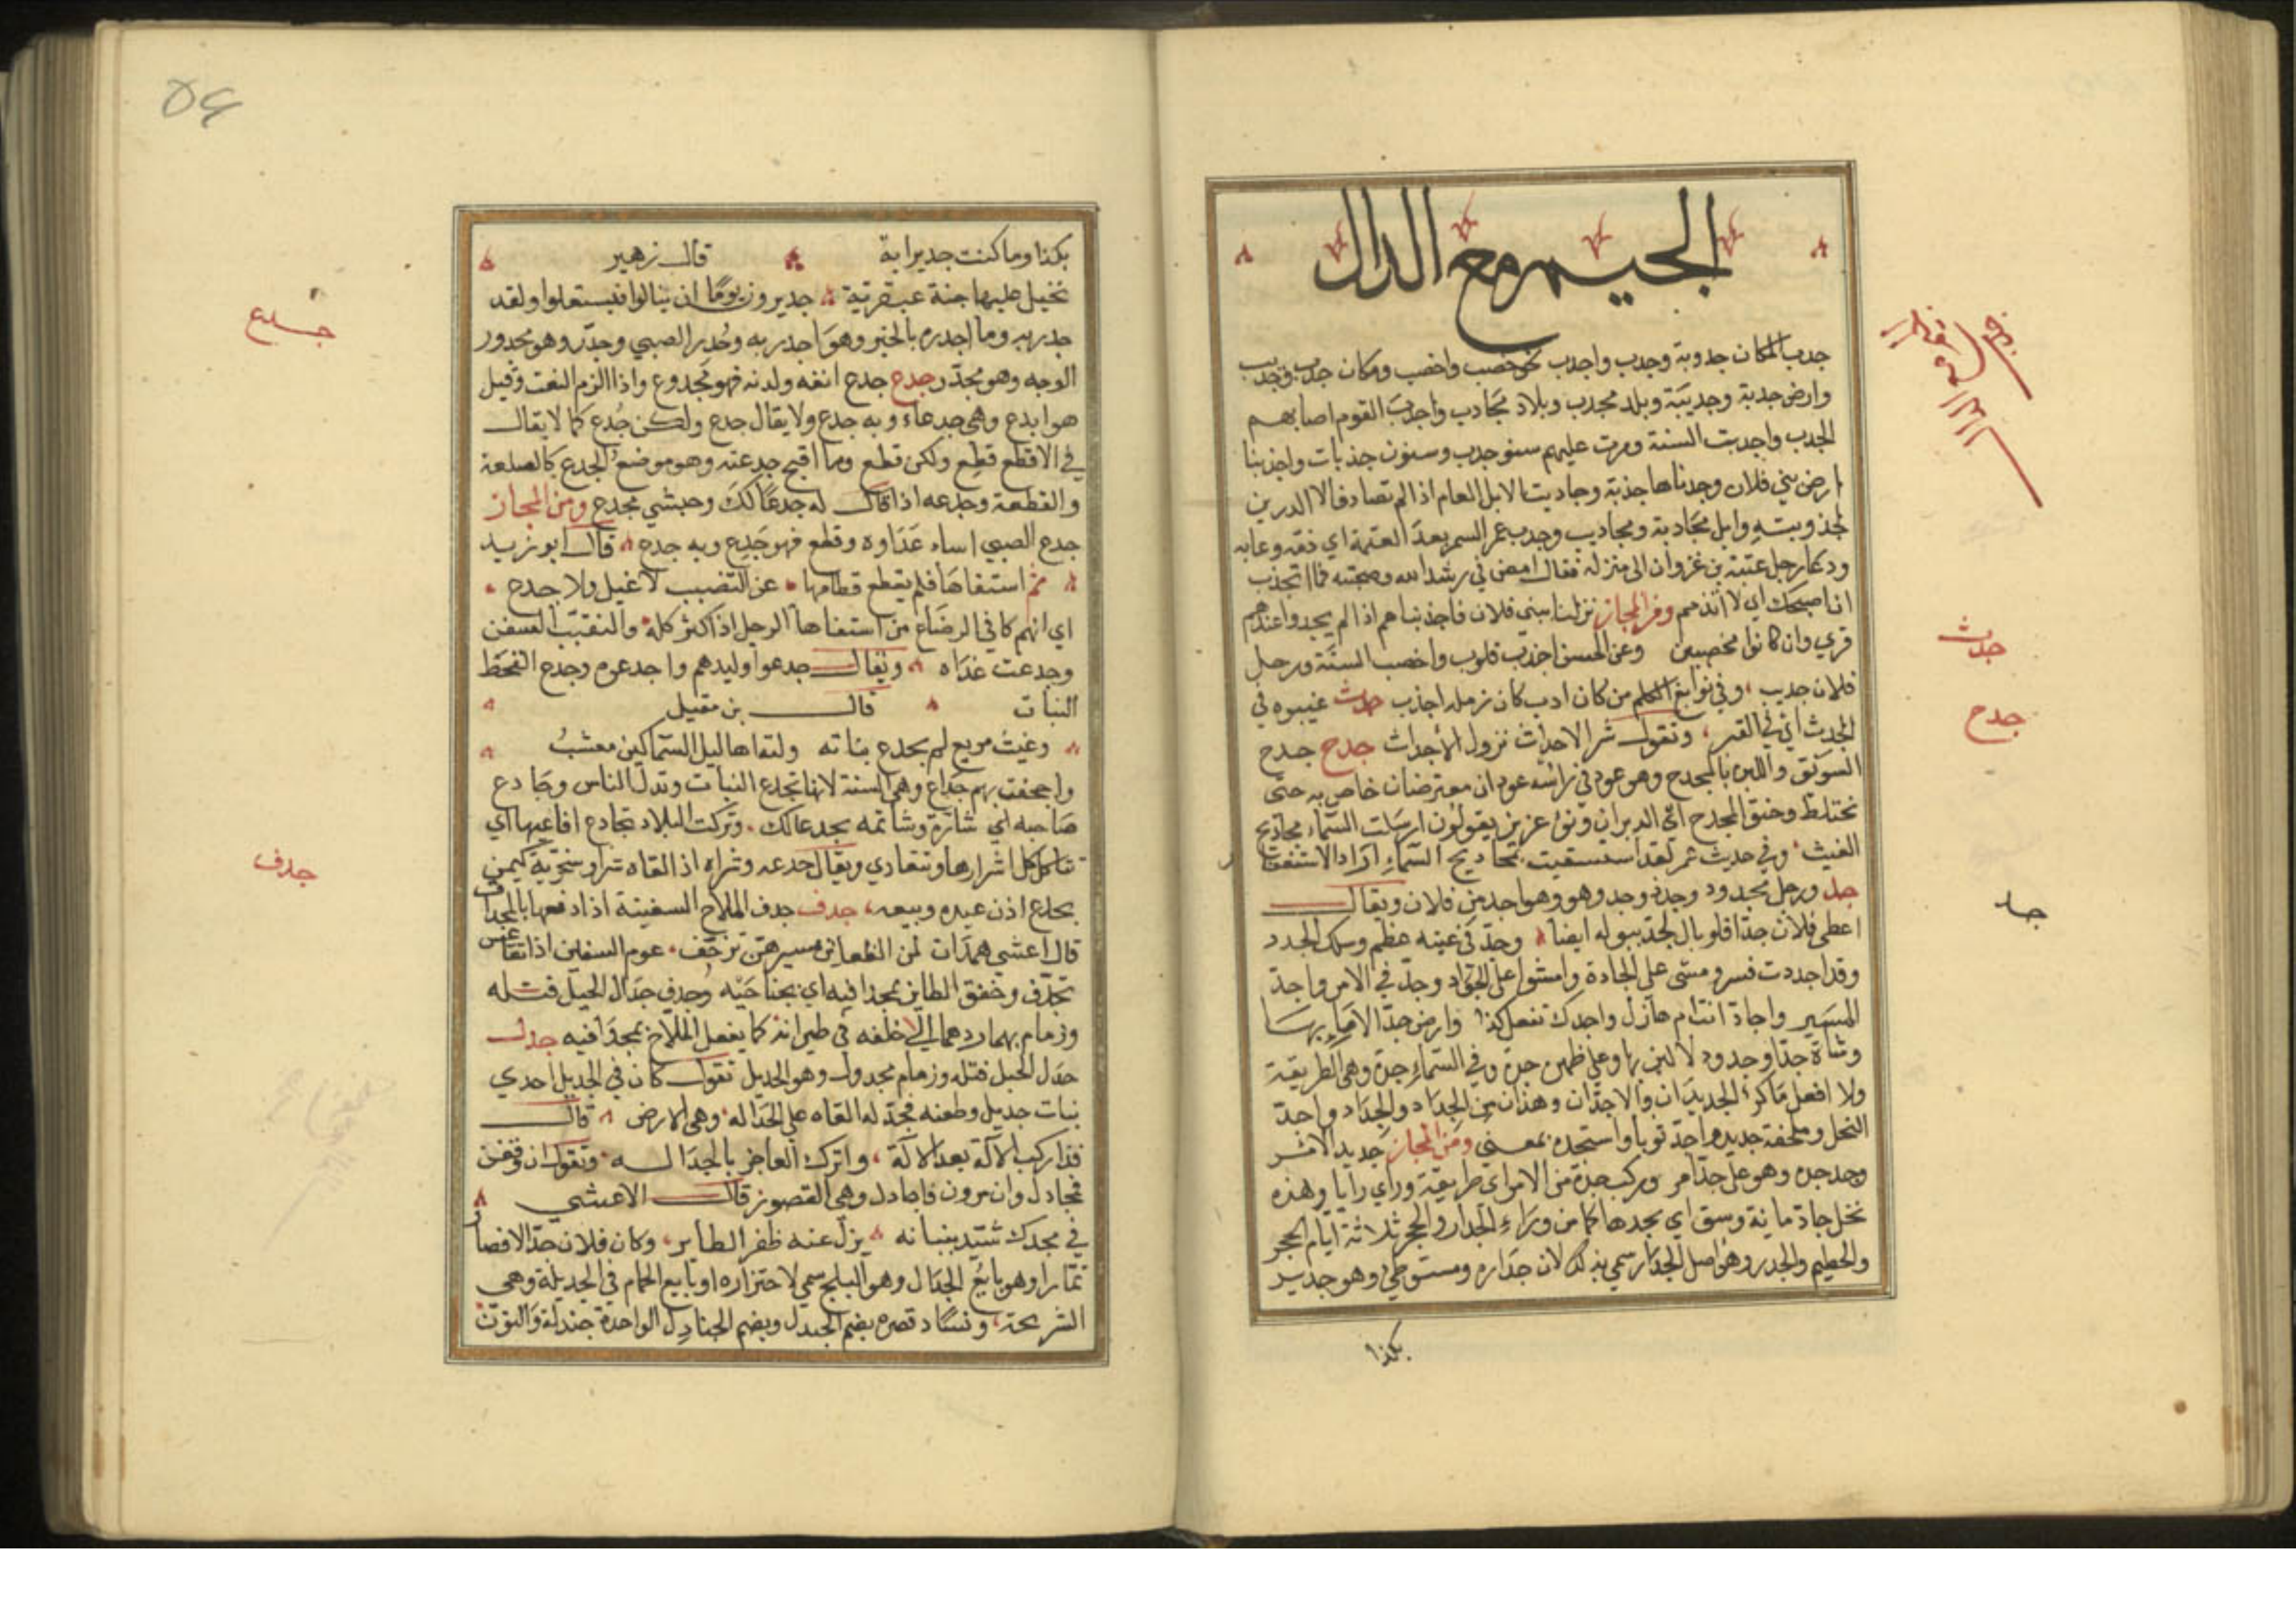 الجيم مع الدال
جدب المكان جدوبة وجدب واجدب نحو خصب واخصب ومكان جدب وجديب
وارض جدبة وجديبة وبلد مجدب وبلاد مجادب واجدب القوم اصابهم
الجدب واجدبت السنة ومرت عليهم سنو جدب وسنون جذبات واجذبنا
ارض بني فلان وجدناها جذبة وجاديت الابل العام اذا لم تصادف الا الدرين
لجذوبته وابل مجادبة ومجاديب وجدب عمر السمر بعد العتمة اي ذمه وعابه
ودعا رجل عتبة بن غزوان الى منزله فقال امض في رشد الله وصحبته فما اتجذب
ان اصحبك اي لا اتذمم ومن المجاز نزلنا ببني فلان فاجذبناهم اذا لم يجدوا عندهم
قري وان كانوا مخصبين وعن الحسن اجذب قلوب واخصب السنة ورجل
فلان جديب وفي نوابغ الكلم من كان ادب كان نزمله اجذب حدث غيبوه في
الجدث اي في القبر وتقول شر الاحداث نزول الأجداث جدح جدح
السويق واللبن بالمجدح وهو عود في راسه عودان معترضان خاص به حتى
يختلط وخفق المجدح اي الدبران ونوء عزيز يقولون ارسلت السماء مجاديح
الغيث وفي حديث عمر لقد استسقيت بمجاديح السماء اراد الاستغفار
جد ورجل مجدود وجد وجد وهو وهو اجد من فلان ويقال
اعطى فلان جدا فلو بال لجد ببوله ايضا وجد في عينه عظم وسلك الجدد
وقد اجددت فسر ومشى على الجادة وامشوا على الجواد وجد في الامر واجد
المسير واجاد انت ام هازل واجدك تفعل كذا وارض جدا لا ماء بها
وشاة جدا وجدود لا لبن بها وعلى ظهره جدة وفي السماء جدة وهي الطريقة
ولا افعل ما كر الجديدان والاجدان وهذان من الجداد والجداد واجد
النخل وملحفة جديد واجد ثوبا واستجده بمعنى ومن المجاز جديد الاثر
وجد جده وهو على جد امر وركب جدة من الامر اي طريقة وراي رايا وهذه
نخل جاد مائة وسق اي يجدها كما من وراء الجدار والحجر ثلاثة ايام الحجر
والحطيم والجدر وهو اصل الجدار سمي بذلك لان جداره ومستوطئ وهو جدير
بكذا
جدث
جدح
جد
بكذا وما كنت جديرا به قال زهير
بخيل عليها جنة عبقرية جديرون يوما ان ينالوا فيستعلوا ولقد
جدر به وما اجدره بالخير وهو اجدر به وجدر الصبي وجدر وهو مجدور
الوجه وهو مجدر جدع جدع انفه ولدنه فهو مجدوع واذا الزم النعت وقيل
هو ابدع وهي جدعاء وبه جدع ولا يقال جدع ولكن جدع كما لا يقال
في الاقطع قطع ولكن قطع وما اقبح جدعته وهو موضع الجدع كالصلعة
والقطعة وجدعه اذا قال له جدعا لك وحبشي مجدع ومن المجاز
جدع الصبي اساء غذاوه وقطع فهو جدع وبه جدع قال ابو زبيد
ثم استفاها فلم يقطع فطامها عن التضبب لا غيل ولا جدع
اي انهم كما في الرضاع من استفاها الرجل اذا كثر كله والتقبب السمن
وجدعت غذاه ويقال جدعوا وليدهم واجدعوه وجدع القحط
النبات قال بن مقبل
وغيث مريع لم يجدع نباته ولتهاها ليل السماكين معشب
واجحفت بهم جداع وهي السنة لانها تجدع النبات وتذل الناس وجادع
صاحبه اي شاره وشاتمه بجدعا لك وتركت البلاد تجادع افاعيها اي
تتاكل كل اشرارها وتتعادي ويقال جدعه وشراه اذ القاه شرا وسخرية كمن
يجدع اذن عبده ويبيعه جدف جدف الملاح السفينة اذا دفعها بالمجداف
قال اعشى همدان لمن الظعاين سيرهن تزحف عوم السفين اذا تقاعس
تجدف وخفق الطاير بمجدافيه اي بجناحيه وجدف جدال الحبل فتله
وزمام بهما ردهما الى خلفه في طيرانه كما يفعل الملاح بمجدافيه جدل
جدل الحبل فتله وزمام مجدول وهو الجديل تقول كان في الجديل احدي
بنات جديل وطعنه فجدله القاه على الجداله وهي الارض قال
قد اركب الآلة بعد الآلة واترك العاجز بالجداله وتقول ان وقفن
فجادل وان مرون فاجادل وهي القصور قال الاعشي
في مجدل شيد بنيانه يزل عنه ظفر الطاير وكان فلان جدالا فصار
تمارا وهو بايع الجدال وهو البلح سمي لاحتزازه او بايع الحمام في الجديلة وهي
الشريجة وتشاد قصره بضم الجندل وبضم الجنادل الواحدة جندلة والنوتى
جدع
جدف